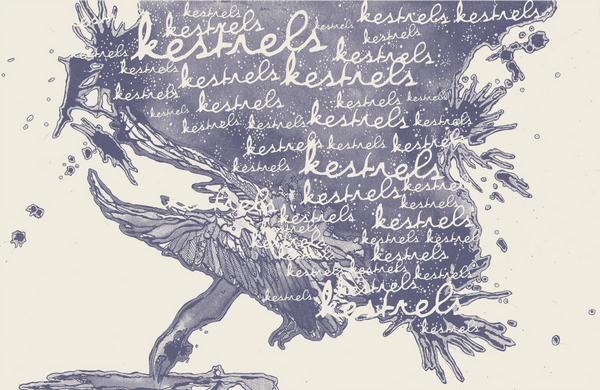 kestrels
kestrels kestrels
kestrels
kestrels kestrels
kestrels
kestrels
kestrels
kestrels kestrels kestrels
kestrels
kestrels kestrels kestrels
kestrels kestrels
kestrels kestrels kestrels kestrels
kestrels kestrels
kestrels kestrels
kestrels kestrels
kestrels
kestrels kestrels
kestrels
kestrels kestrels
kestrels
kestrels kestrels kestrels
kestrels
kestrels kestrels
kestrels